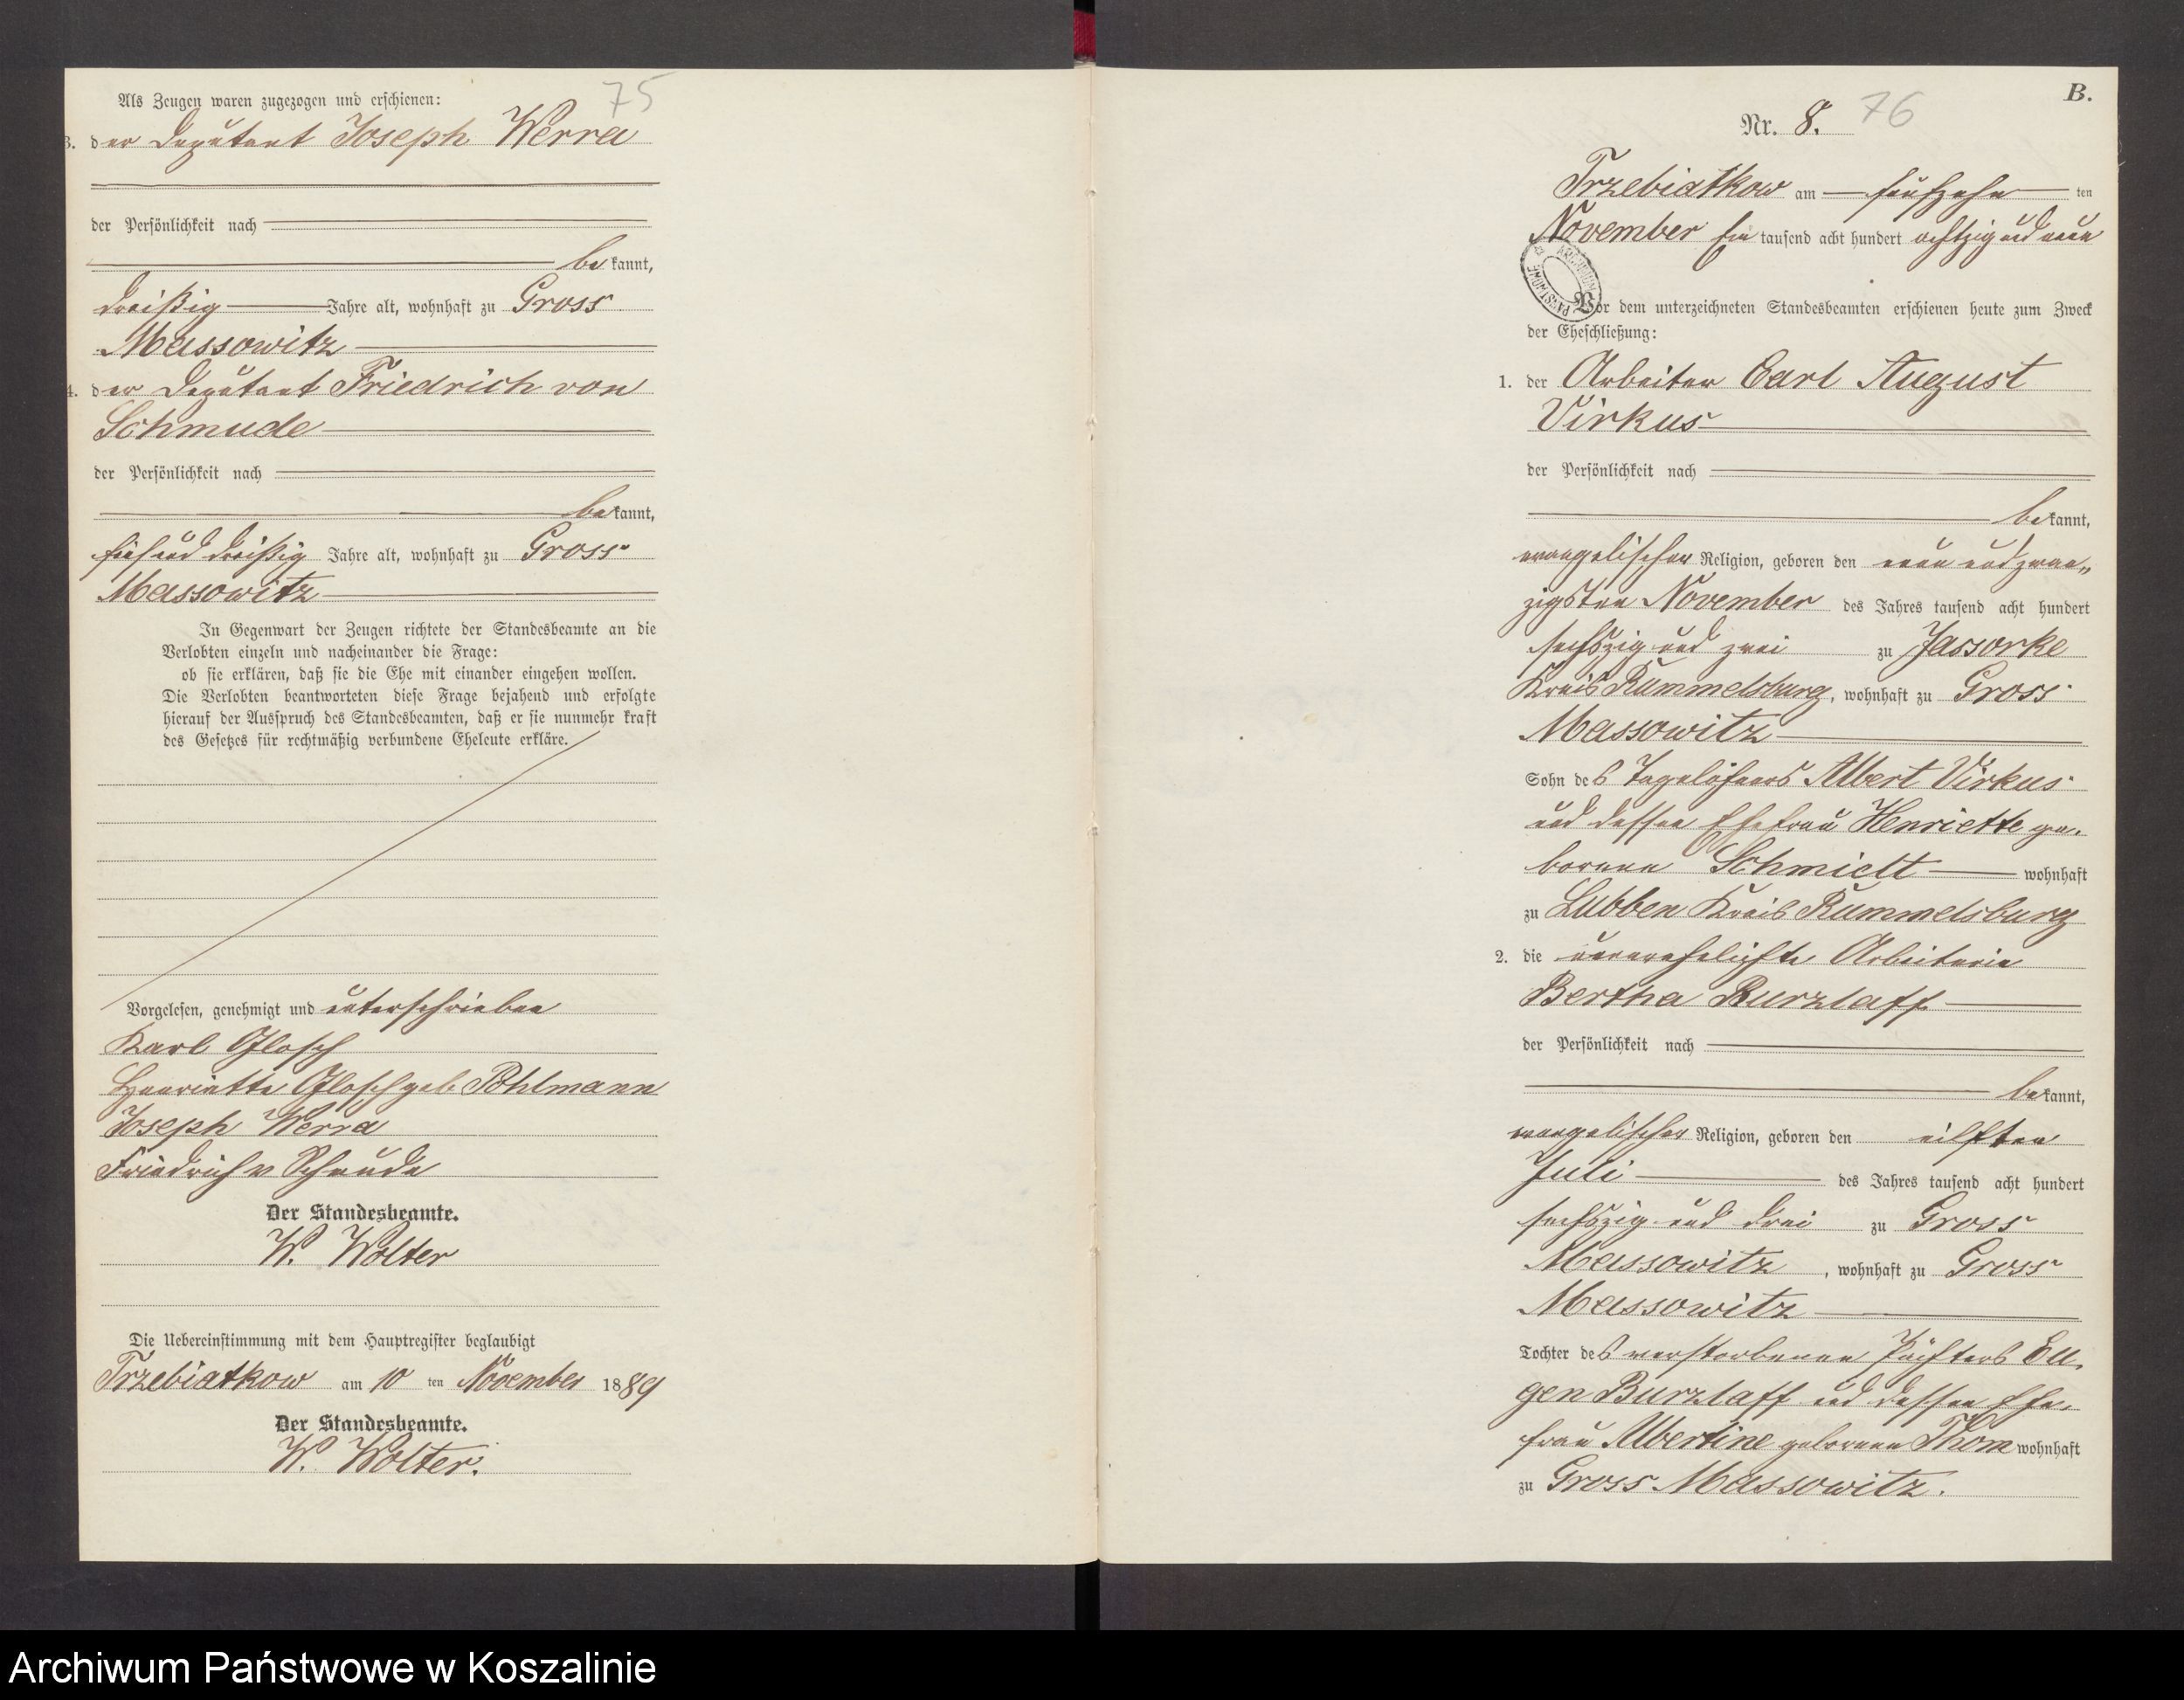 75
Als Zeugen waren zugezogen und erschienen:
3. der Deputant Joseph Werra
der Persönlichkeit nach
bekannt,
dreißig Jahre alt, wohnhaft zu Gross
Massowitz
4. der Deputant Friedrich von
Schmude
der Persönlichkeit nach
bekannt,
fünf und dreißig Jahre alt, wohnhaft zu Gross
Massowitz
In Gegenwart der Zeugen richtete der Standesbeamte an die
Verlobten einzeln und nacheinander die Frage:
ob sie erklären, daß sie die Ehe mit einander eingehen wollen.
Die Verlobten beantworteten diese Frage bejahend und erfolgte
hierauf der Ausspruch des Standesbeamten, daß er sie nunmehr kraft
des Gesetzes für rechtmäßig verbundene Eheleute erkläre.
Vorgelesen, genehmigt und unterschrieben
Karl Glosch
Henriette Glosch geb Pohlmann
Joseph Werra
Friedrich v Schmude
Der Standesbeamte.
W. Wolter
Die Uebereinstimmung mit dem Hauptregister beglaubigt
Trzebiatkow am 10 ten November 1889
Der Standesbeamte.
W. Wolter.
B.
Nr. 8. 76
Trzebiatkow am fünfzehn ten
November Ein tausend acht hundert achtzig und neun
Vor dem unterzeichneten Standesbeamten erschienen heute zum Zweck
der Eheschließung:
1. der Arbeiter Carl August
Virkus
der Persönlichkeit nach
bekannt,
evangelischer Religion, geboren den neun und zwan„
zigsten November des Jahres tausend acht hundert
sechszig und zwei zu Jassorke
Kreis Rummelsburg, wohnhaft zu Gross
Massowitz
Sohn des Tagelöhners Albert Virkus
und dessen Ehefrau Henriette ge.
borenen Schmidt wohnhaft
zu Lubben Kreis Rummelsburg
2. die unverehelichte Arbeiterin
Bertha Burzlaff
der Persönlichkeit nach
bekannt,
evangelischer Religion, geboren den eilften
Juli des Jahres tausend acht hundert
sechszig und drei zu Gross
Massowitz, wohnhaft zu Gross
Massowitz
Tochter des verstorbenen Pächters Eu.
gen Burzlaff und dessen Ehe.
frau Albertine geborenen Thom wohnhaft
zu Gross Massowitz.
Archiwum Państwowe w Koszalinie